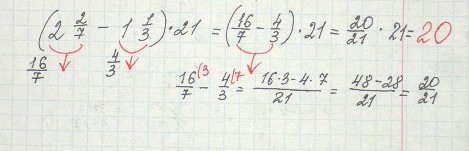 (2 2/7 - 1 1/3) · 21 = (16/7 - 4/3) · 21 = 20/21 · 21 = 20
16/7 4/3
16/7 (3 - 4/3 (7 = 16·3-4·7/21 = 48-28/21 = 20/21